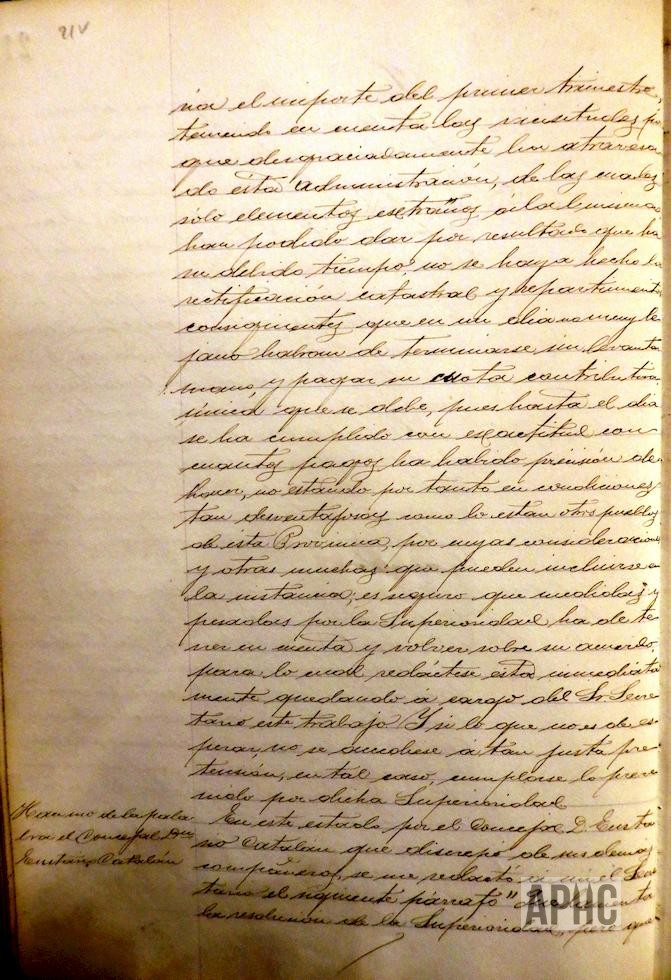 21 V
ria el importe del primer trimestre,
teniendo en cuenta las vicisitudes por
que desgraciadamente ha atravesa
do esta administración, de las cuales
sólo elementos extraños á la
han podido dar por resultado que ha
su debido tiempo, no se haya hecho la
rectificación catastral y repartimiento
consiguientes que en un dia no muy le
jano habran de terminarse sin levanta
mano, y pagar su cuota contributiva
única que se debe, pues hasta el dia
se ha cumplido con exactitud con
cuantos pagos ha habido precisión de
hacer, no estando por tanto en condiciones
tan desventajosas como lo estan otros pueblos
de esta Provincia, por cuyas consideraciones
y otras muchas que pueden incluirse en
la instancia, es seguro que medidas y
pesadas por la Superioridad ha de te
ner en cuenta y volver sobre su acuerdo,
para lo cual redáctese esta inmediata
mente quedando á cargo del Sr. Secre
tario este trabajo. Y si lo que no es de es
perar, no se accediese a tan justa pre
tensión, en tal caso, cumplase lo preve
nido por dicha Superioridad
Hace uso de la pala
bra el Concejal Dn
Eustasio Catalán
En este estado por el Concejal D. Eusta
sio Catalán que discrepó de sus demas
compañeros, se me redactó a mi el Secre
tario el siguiente párrafo "
la resolución de la Superioridad, pero que
APHC